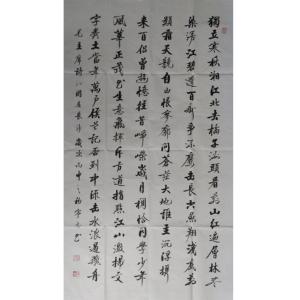 獨立寒秋湘江北去橘子洲頭看萬山紅遍層林尽
染漫江碧透百舸爭流鷹击長空魚翔淺底萬
類霜天競自由悵寥廓問蒼茫大地誰主沉浮攜
来百侣曾遊憶往昔崢嶸歲月稠恰同學少年
風華正茂书生意氣揮斥方遒指點江山激揚文
字糞土當年萬户侯曾記否到中流击水浪遏飛舟
毛主席詩沁園春長沙歲次丙申之